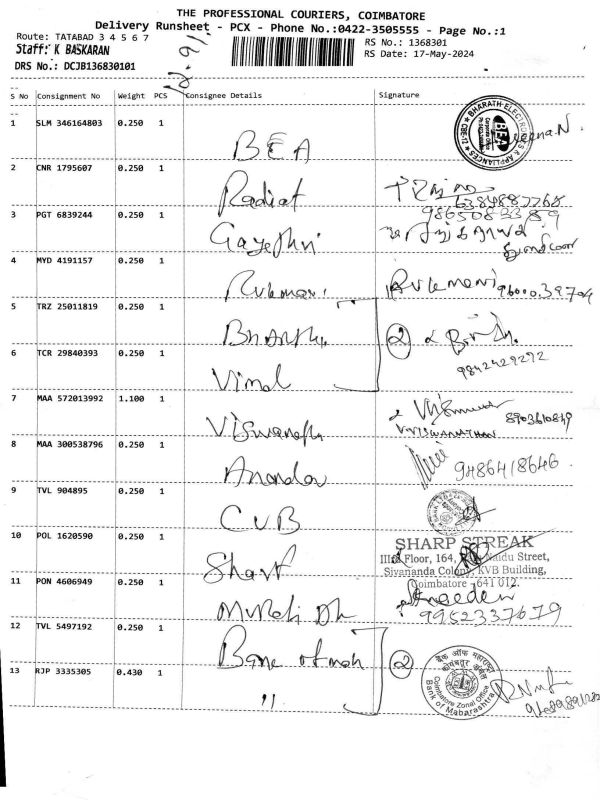 THE PROFESSIONAL COURIERS, COIMBATORE
Delivery Runsheet - PCX - Phone No.:0422-3505555 - Page No.:1
Route: TATABAD 3 4 5 6 7
RS No.: 1368301
Staff: K BASKARAN
RS Date: 17-May-2024
DRS No.: DCJB136830101
S No Consignment No Weight PCS Consignee Details Signature
1 SLM 346164803 0.250 1 BEA
BHARATH ELECTRONICS & APPLIANCES BEA CBE-12
2 CNR 1795607 0.250 1 Radiat
3 PGT 6839244 0.250 1 Gayethri 9865083389
4 MYD 4191157 0.250 1 Rukmani Rukmani
5 TRZ 25011819 0.250 1 Bharthi 2
6 TCR 29840393 0.250 1 Vimal 9842429292
7 MAA 572013992 1.100 1 Viswanath
VISWANATHAN 8903610849
8 MAA 300538796 0.250 1 Anandan 9486418646
9 TVL 904895 0.250 1 CUB
10 POL 1620590 0.250 1 Sharp
SHARP STREAK
Floor, 164, Naidu Street,
Sivananda Colony, KVB Building,
Coimbatore - 641 012.
11 PON 4606949 0.250 1 Murali 9952337679
12 TVL 5497192 0.250 1 Bank of mah 2
बैंक ऑफ महाराष्ट्र
Coimbatore Zonal Office
Bank of Maharashtra
13 RJP 3335305 0.430 1 "